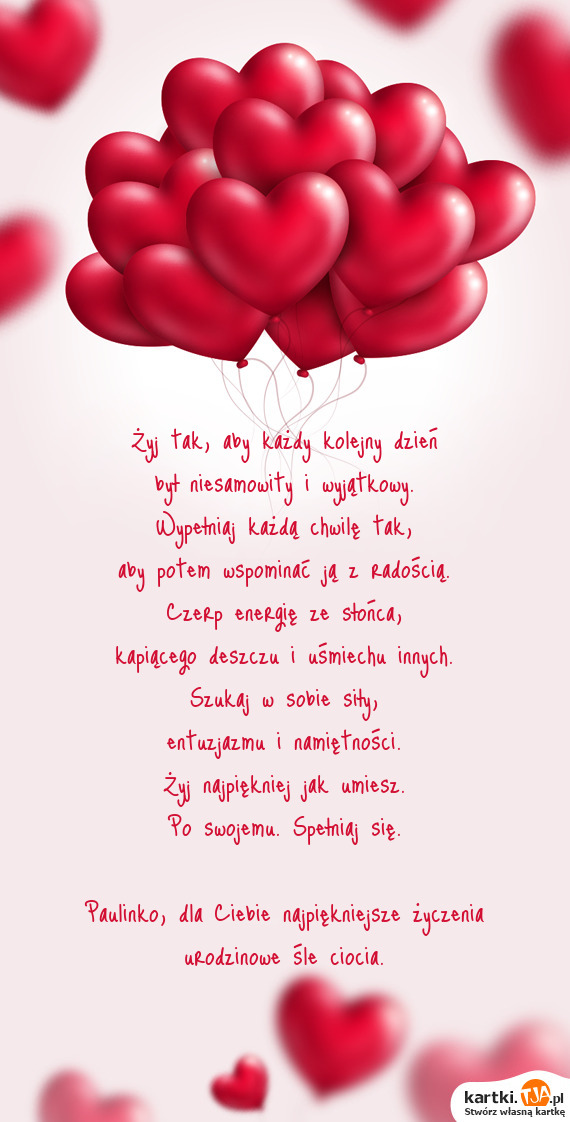 Żyj tak, aby każdy kolejny dzień
był niesamowity i wyjątkowy.
Wypełniaj każdą chwilę tak,
aby potem wspominać ją z radością.
Czerp energię ze słońca,
kapiącego deszczu i uśmiechu innych.
Szukaj w sobie siły,
entuzjazmu i namiętności.
Żyj najpiękniej jak umiesz.
Po swojemu. Spełniaj się.
Paulinko, dla Ciebie najpiękniejsze życzenia
urodzinowe śle ciocia.
kartki.TJA.pl
Stwórz własną kartkę